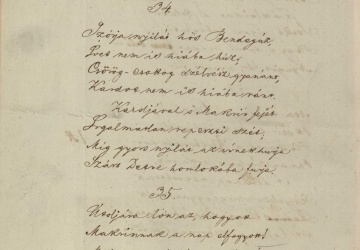 34
Szórja nyilát hős Bendegúz,
Ives nem is hiába húz,
Csörög-csattog szélvész gyanánt,
Kardos nem is hiába ránt.
Kardjával s Makrin fejét
Irgalmatlan repeszti szét;
Míg gyors nyilát az ívnek húrja
Szárt Detre homlokába fúrja.
35.
Utoljára lőn az, hogyan
Makrinnak a nap elfogyott